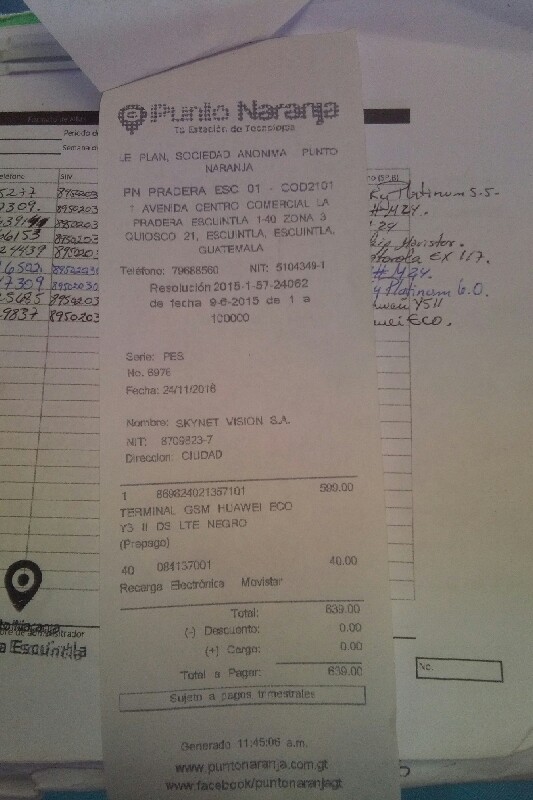 Punto Naranja
Tu Estación de Tecnología
LE PLAN, SOCIEDAD ANONIMA PUNTO
NARANJA
PN PRADERA ESC 01 - COD2101
1 AVENIDA CENTRO COMERCIAL LA
PRADERA ESCUINTLA 1-40 ZONA 3
QUIOSCO 21, ESCUINTLA, ESCUINTLA,
GUATEMALA
Teléfono: 79688560 NIT: 5104349-1
Resolución 2015-1-57-24062
de fecha 9-6-2015 de 1 a
100000
Serie: PES
No. 6976
Fecha: 24/11/2016
Nombre: SKYNET VISION S.A.
NIT: 8709823-7
Direccion: CIUDAD
1 869824021357101 599.00
TERMINAL GSM HUAWEI ECO
Y3 II DS LTE NEGRO
(Prepago)
40 084137001 40.00
Recarga Electrónica Movistar
Total: 639.00
(-) Descuento: 0.00
(+) Cargo: 0.00
Total a Pagar: 639.00
Sujeto a pagos trimestrales
Generado 11:45:06 a.m.
www.puntonaranja.com.gt
www.facebook/puntonaranjagt
Periodo d
Semana d
eléfono SIM
8950203
8950203
8950203
6153 8950203
4439 8950203
6502 8950203
7309 8950203
5685 8950203
9837 8950203
Platinum 5.5.
# M24.
24
Motorola EX 117.
# M24.
Platinum 6.0.
Y511
ECO.
administrador
a Escuintla
No.